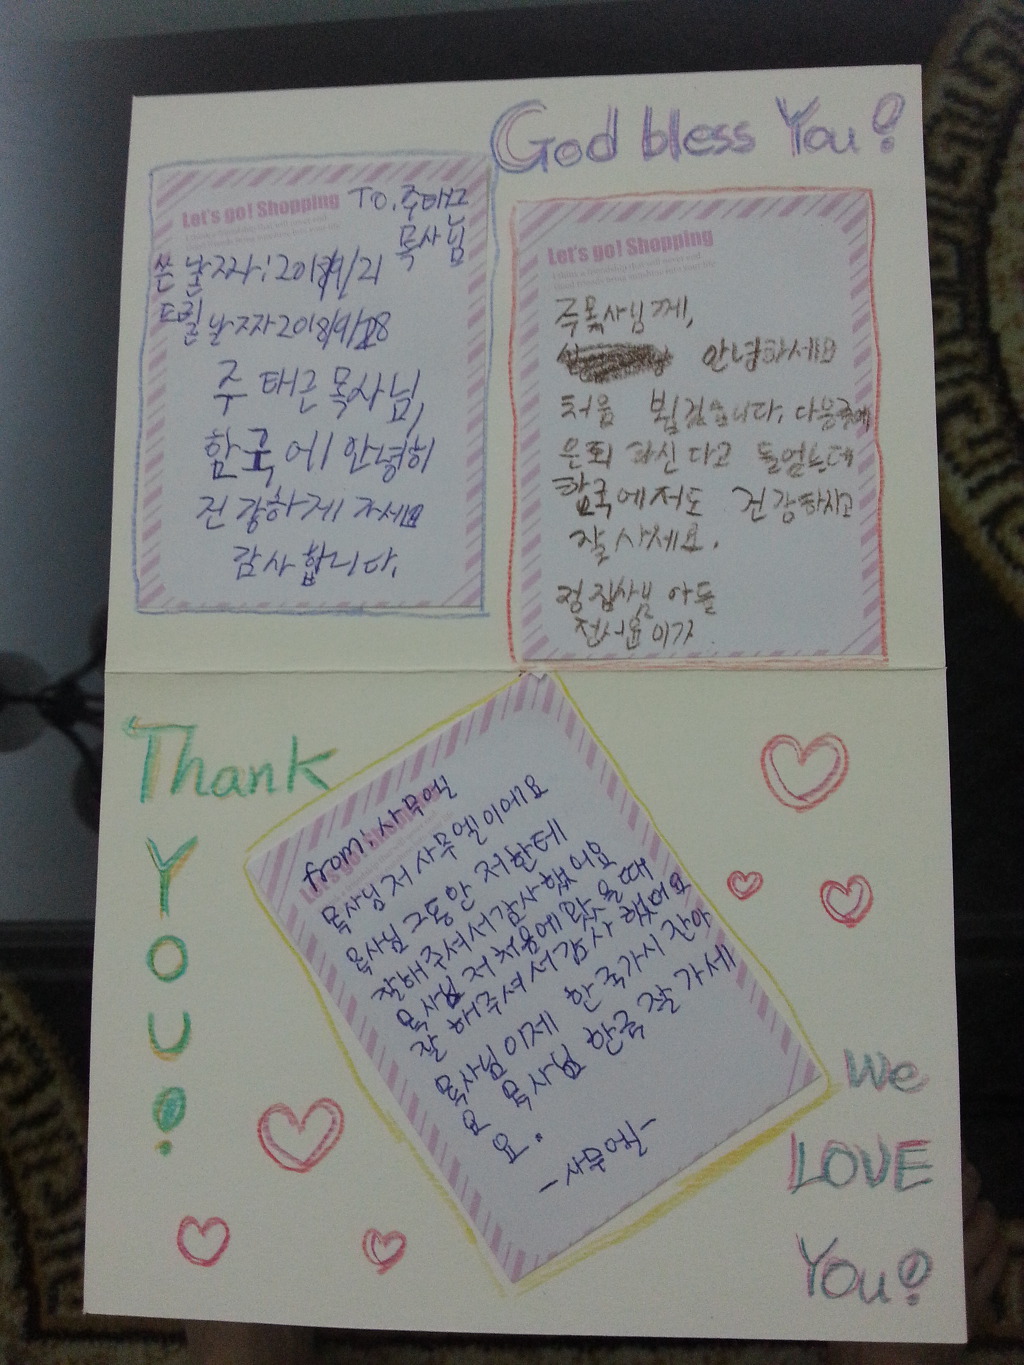 God bless You!
Let's go! Shopping
TO. 주태근
목사님
쓴 날짜: 2018/9/21
드릴 날짜 2018/9/28
주 태근 목사님,
한국에 안녕히
건강하게 가세요
감사합니다.
Let's go! Shopping
주목사님께,
안녕하세요
처음 뵙겠습니다. 다음주에
은퇴 하신다고 들었는데
한국에서도 건강하시고
잘 사세요.
정 집사님 아들
이가
Thank
You!
from: 사무엘
Let's go! Shopping
목사님 저 사무엘이에요
목사님 그동안 저한테
잘해주셔서 감사했어요
목사님 저 처음에 왔을때
잘 해주셔서 감사 했어요
목사님 이제 한국가시잖아
요 목사님 한국 잘 가세
요.
-사무엘-
We
LOVE
You!